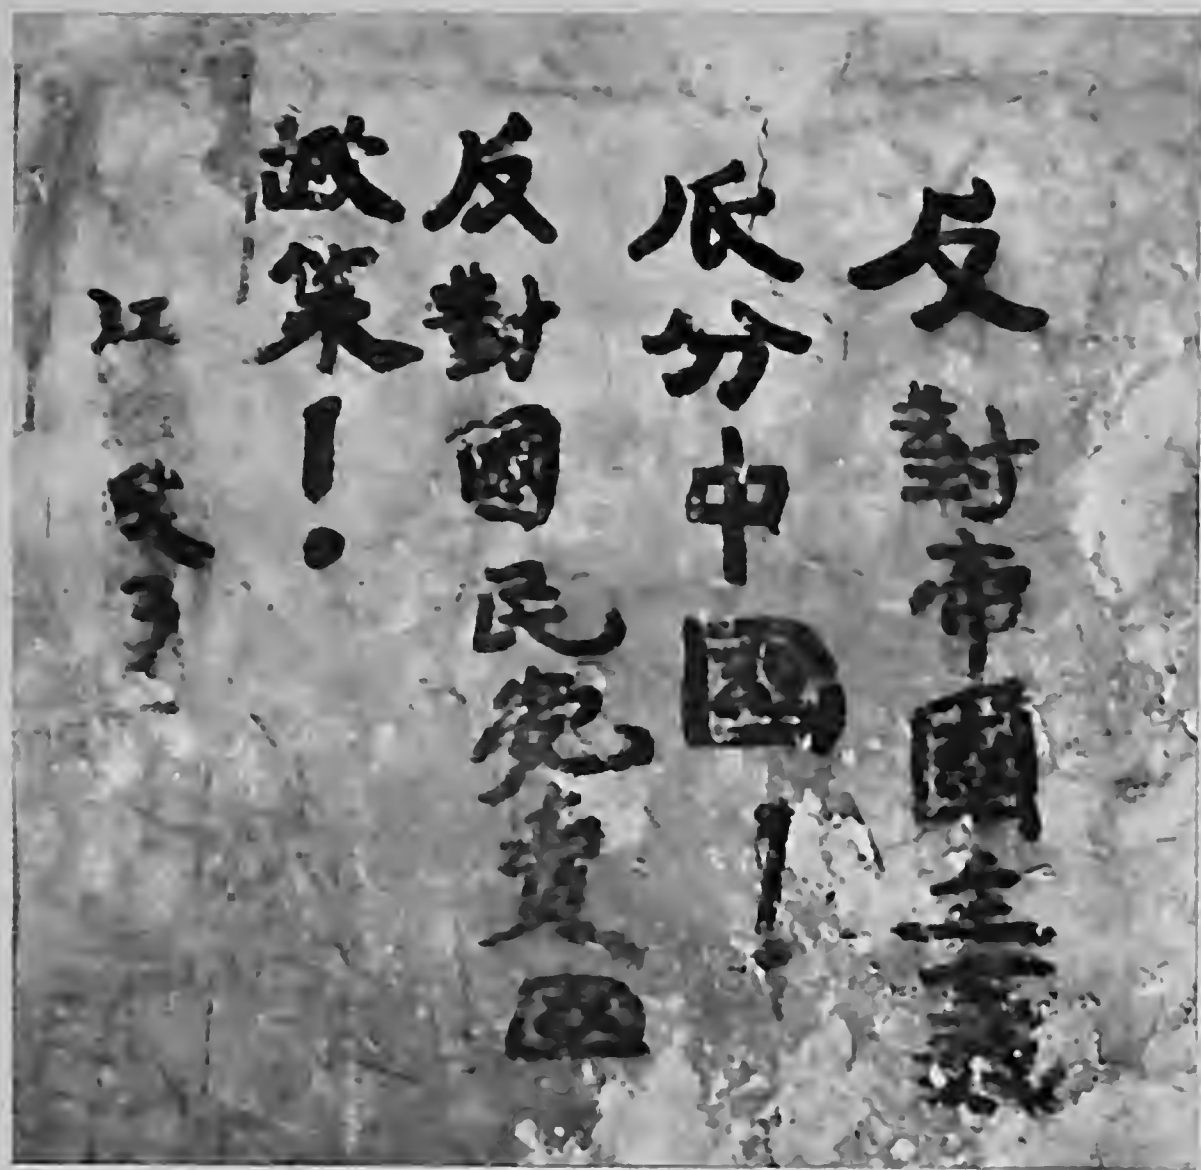 反對帝國主義
瓜分中國！
反對國民党賣国
政策！
江